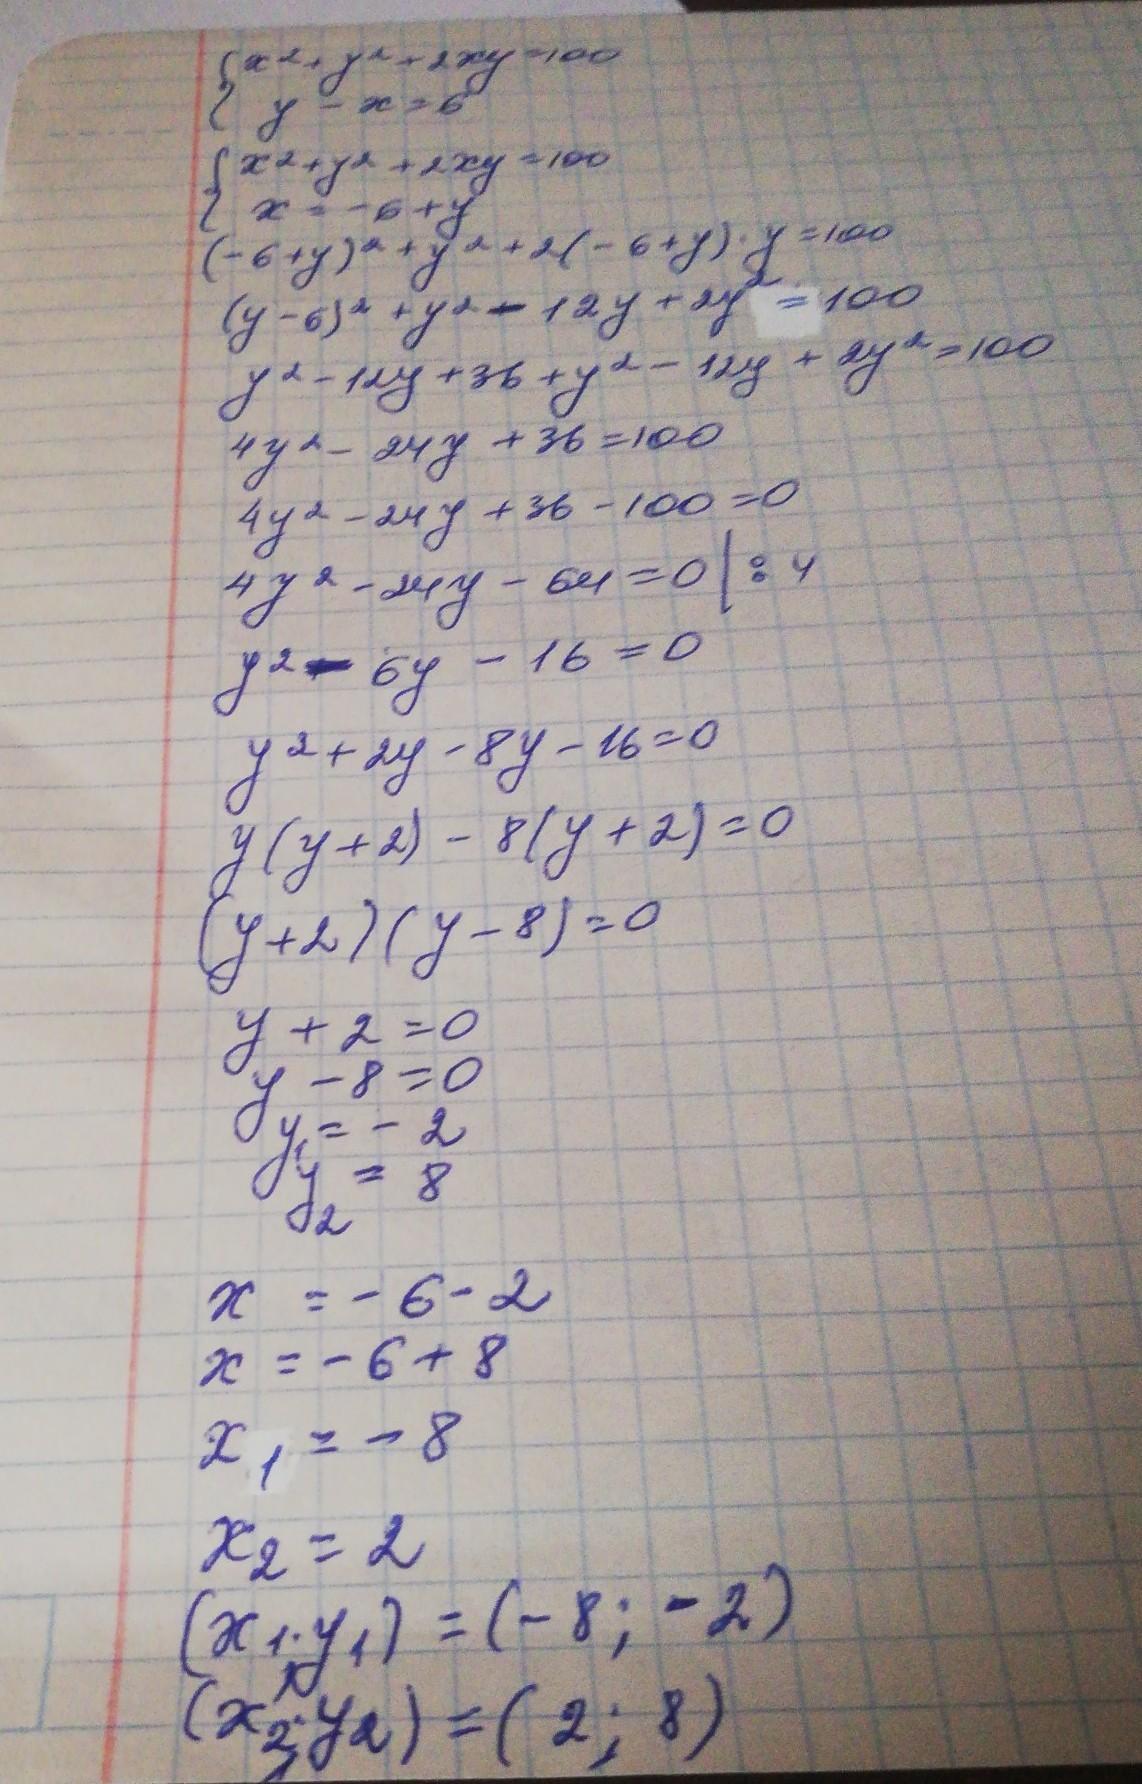 {x²+y²+2xy=100
{y-x=6
{x²+y²+2xy=100
{x=-6+y
(-6+y)²+y²+2(-6+y)·y=100
(y-6)²+y²-12y+2y²=100
y²-12y+36+y²-12y+2y²=100
4y²-24y+36=100
4y²-24y+36-100=0
4y²-24y-64=0|:4
y²-6y-16=0
y²+2y-8y-16=0
y(y+2)-8(y+2)=0
(y+2)(y-8)=0
y+2=0
y-8=0
y₁=-2
y₂=8
x=-6-2
x=-6+8
x₁=-8
x₂=2
(x₁;y₁)=(-8;-2)
(x₂;y₂)=(2;8)